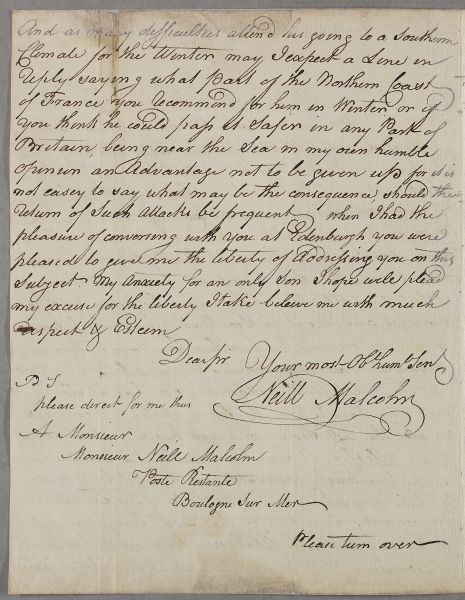 And as many difficulties attend his going to a Southern
Climate for the Winter may I expect a Line in
reply saying what part of the Northern Coast
of France you recommend for him in Winter or if
you think he could pass it Safer in any Part of
Britain, being near the Sea in my own humble
opinion an Advantage not to be given up for it is
not easey to say what may be the consequence, should the
return of Such Attacks be frequent when I had the
pleasure of conversing with you at Edenburgh you were
pleased to give me the liberty of Addressing you on this
Subject. My Anxiety for an only Son I hope will plead
my excuse for the liberty I take beleive me with much
respect & Esteem
Dear Sir Your most Obt humb Sert
Neill Malcolm
P S
please direct for me thus
A Monsieur
Monsieur Neill Malcolm
Poste Restante
Boulogne Sur Mer
Please turn over